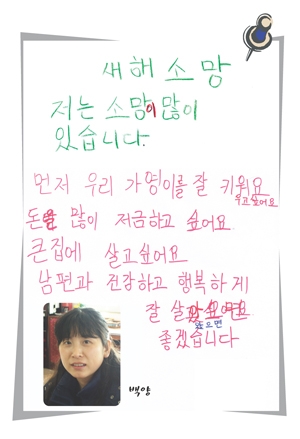 새해 소망
저는 소망이 많이
있습니다.
먼저 우리 가영이를 잘 키워요
우고싶어요
돈을 많이 저금하고 싶어요
큰집에 살고싶어요
남편과 건강하고 행복하게
잘 살
았으면
좋겠습니다
백양